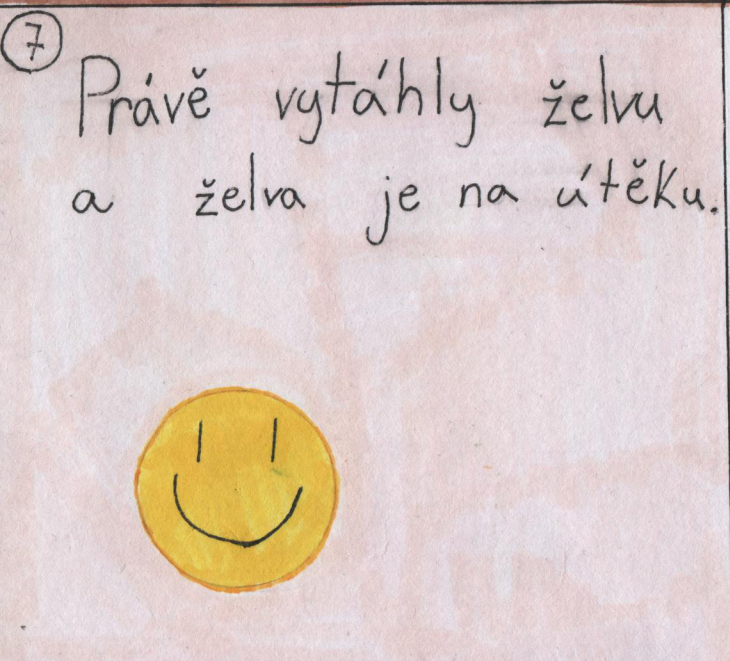 7
Právě vytáhly želvu
a želva je na útěku.